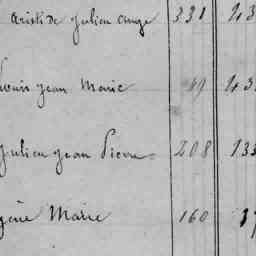 Aristide Julien Ange 331 43
Louis Jean Marie 49 43
Julien Jean Pierre 208 133
Marie 160